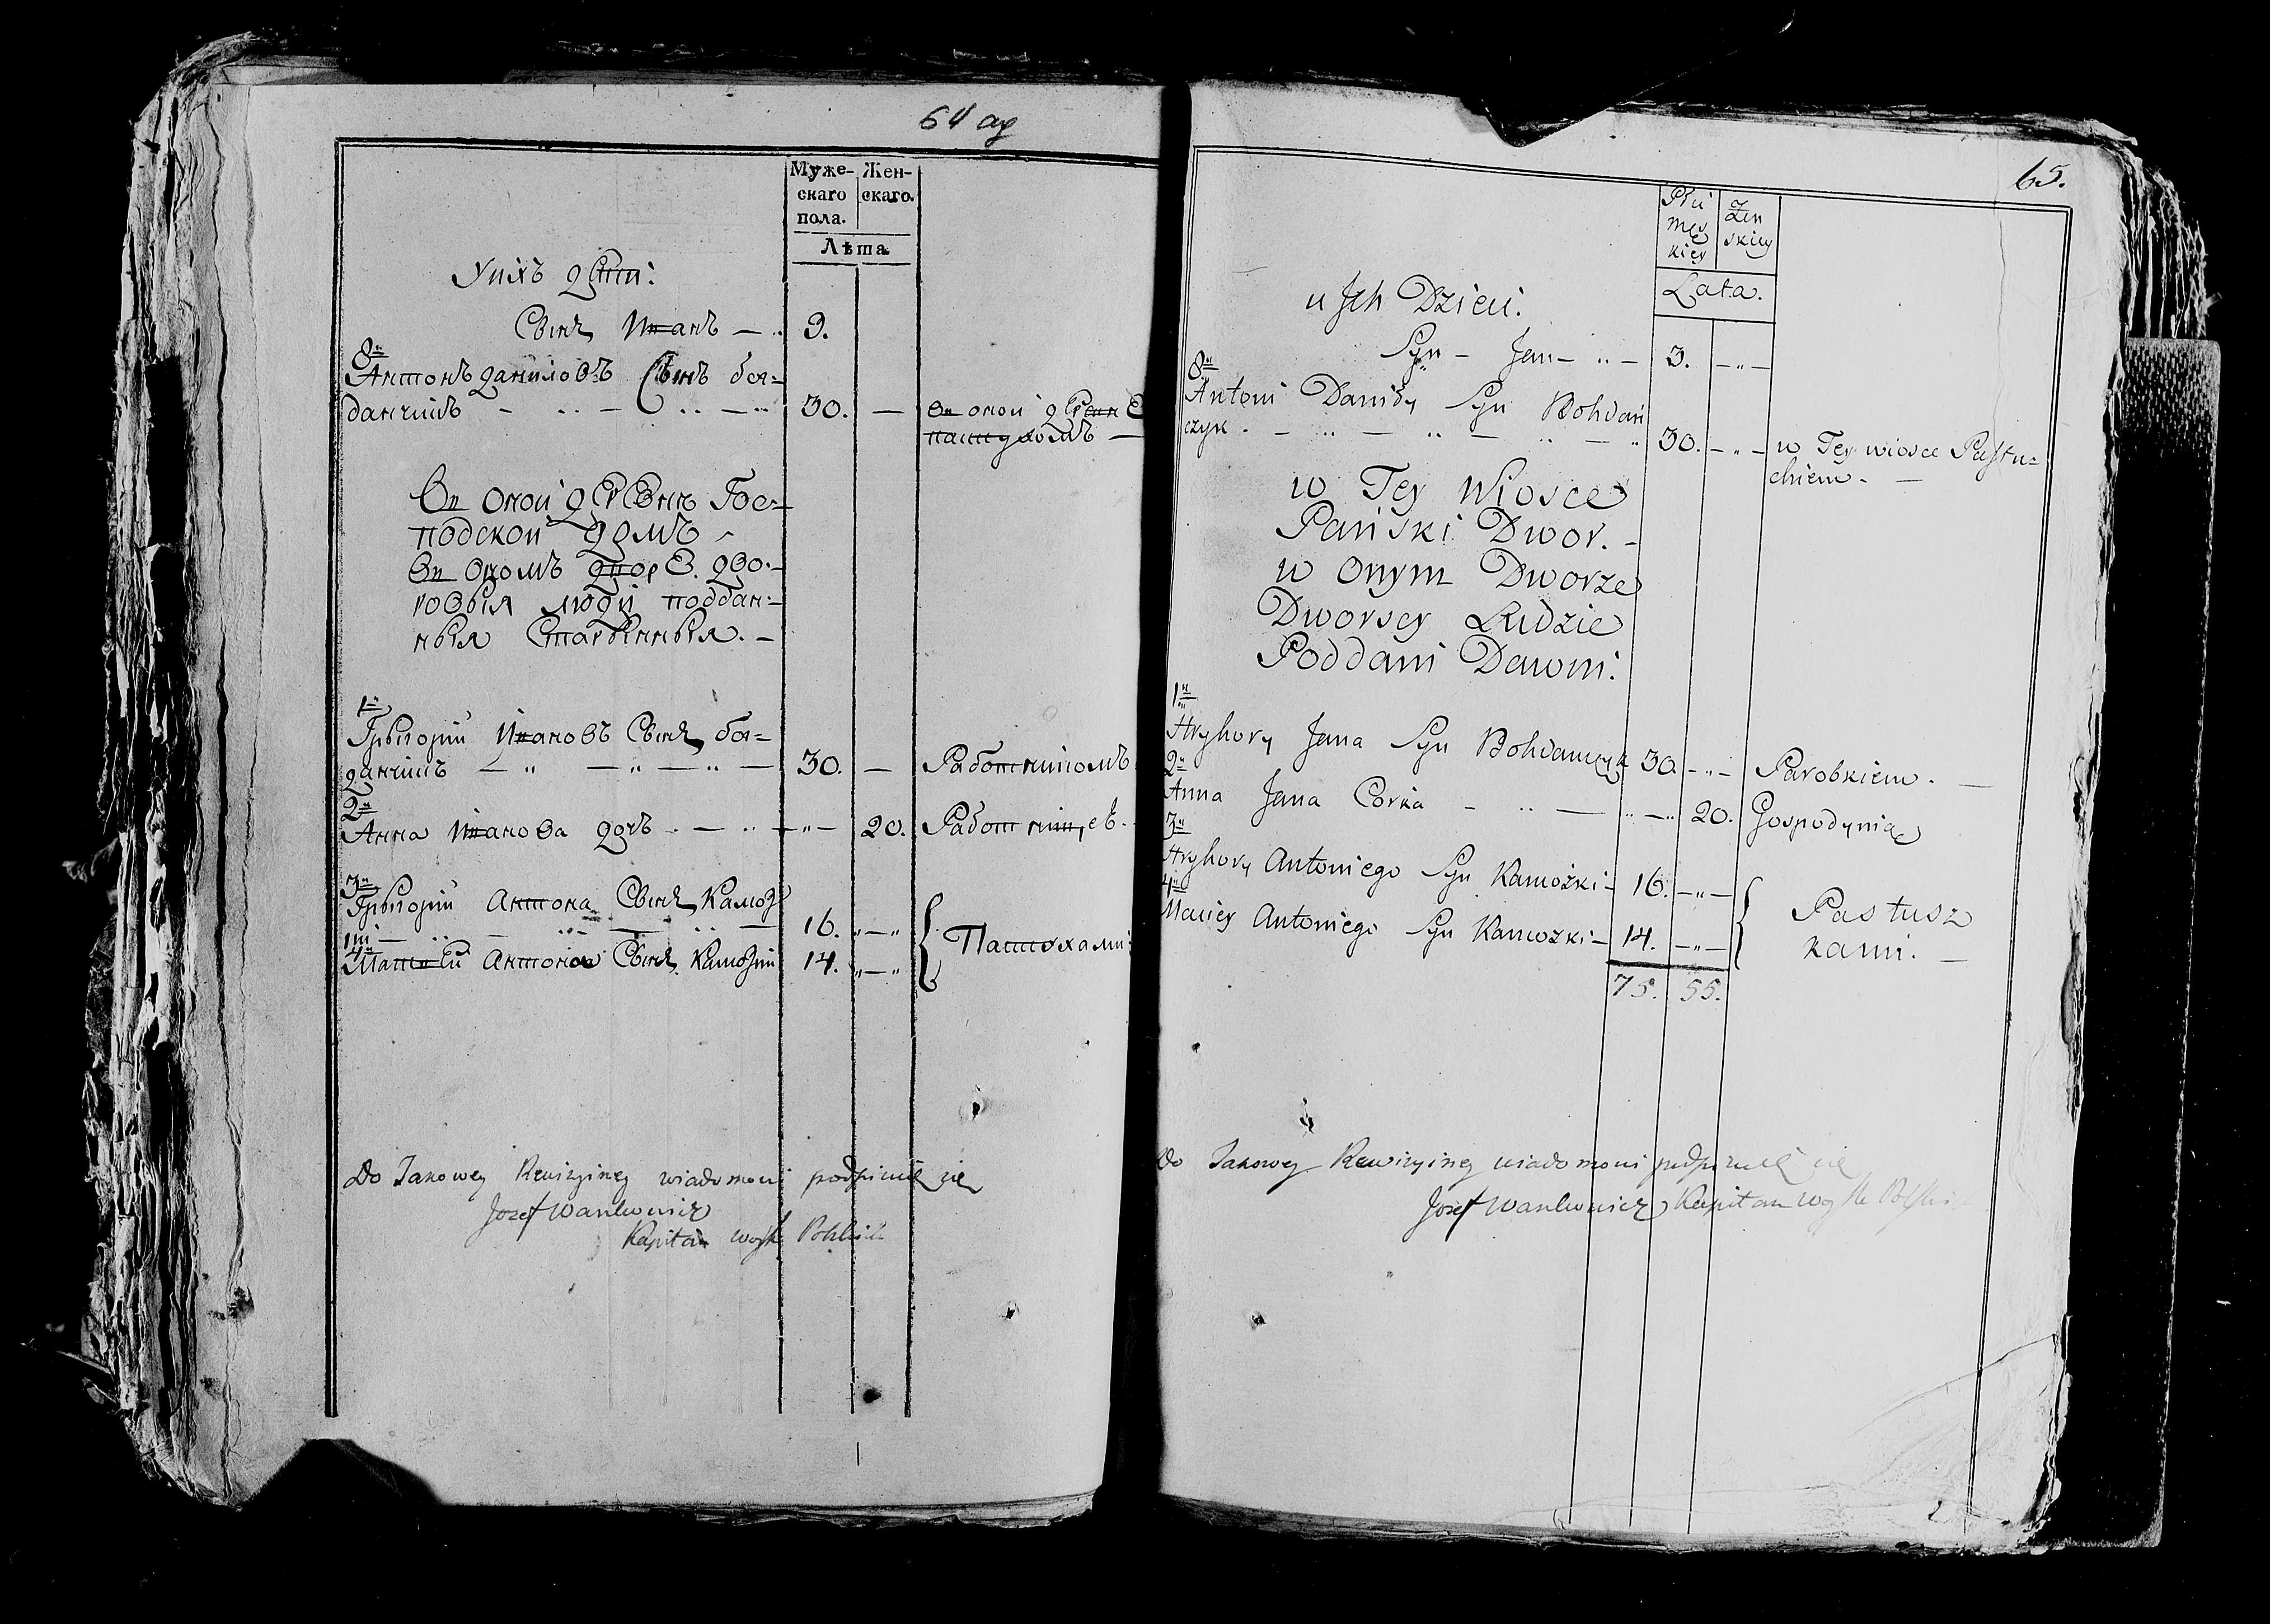 64 ад
Муже-
скаго
пола.
Жен-
скаго.
Лѣта
У нихъ дѣти:
Сынъ Иванъ
9.
8й
Антонъ даниловъ Сынъ бог=
данчикъ
30.
Въ оной дерев
пастухомъ
Въ оной деревнѣ Гос=
подской домъ
Въ ономъ дворѣ дво-
ровыя люди поддан-
ныя Старинныя.
1й
Грыгорій Ивановъ Сынъ бог=
данчикъ
30.
Работникомъ
2я
Анна Иванова дочь
20.
Работницей.
3й
Грыгорій Антона Сынъ
16.
4й
Матвѣй Антонов Сынъ
14.
Пастухами
Do Takowey Rewizyiney wiadomości podpisuię się
Jozef Wankowicz
Kapitan woysk Polskich
65.
Płci
męs
kiey
Żen
skiey
Lata.
u Ich Dzieci.
Syn Jan
3.
8u
Antoni Daniły Syn Bohdań
czyk
30.
w Tey wiosce Pastu=
chiem.
w Tey Wiosce
Pański Dwor.
w Onym Dworze
Dworscy Ludzie
Poddani Dawni.
1u
Hryhory Jana Syn Bohdanczyk
30
Parobkiem.
2u
Anna Jana Corka
20.
Gospodynią
3u
Hryhory Antoniego Syn Kamozki
16.
4u
Maciey Antoniego Syn Kamozki
14.
Pastusz
kami.
75. 55.
Do Takowey Rewizyiney wiadomości podpisuię się
Jozef Wankowicz Kapitan woysk Polskich